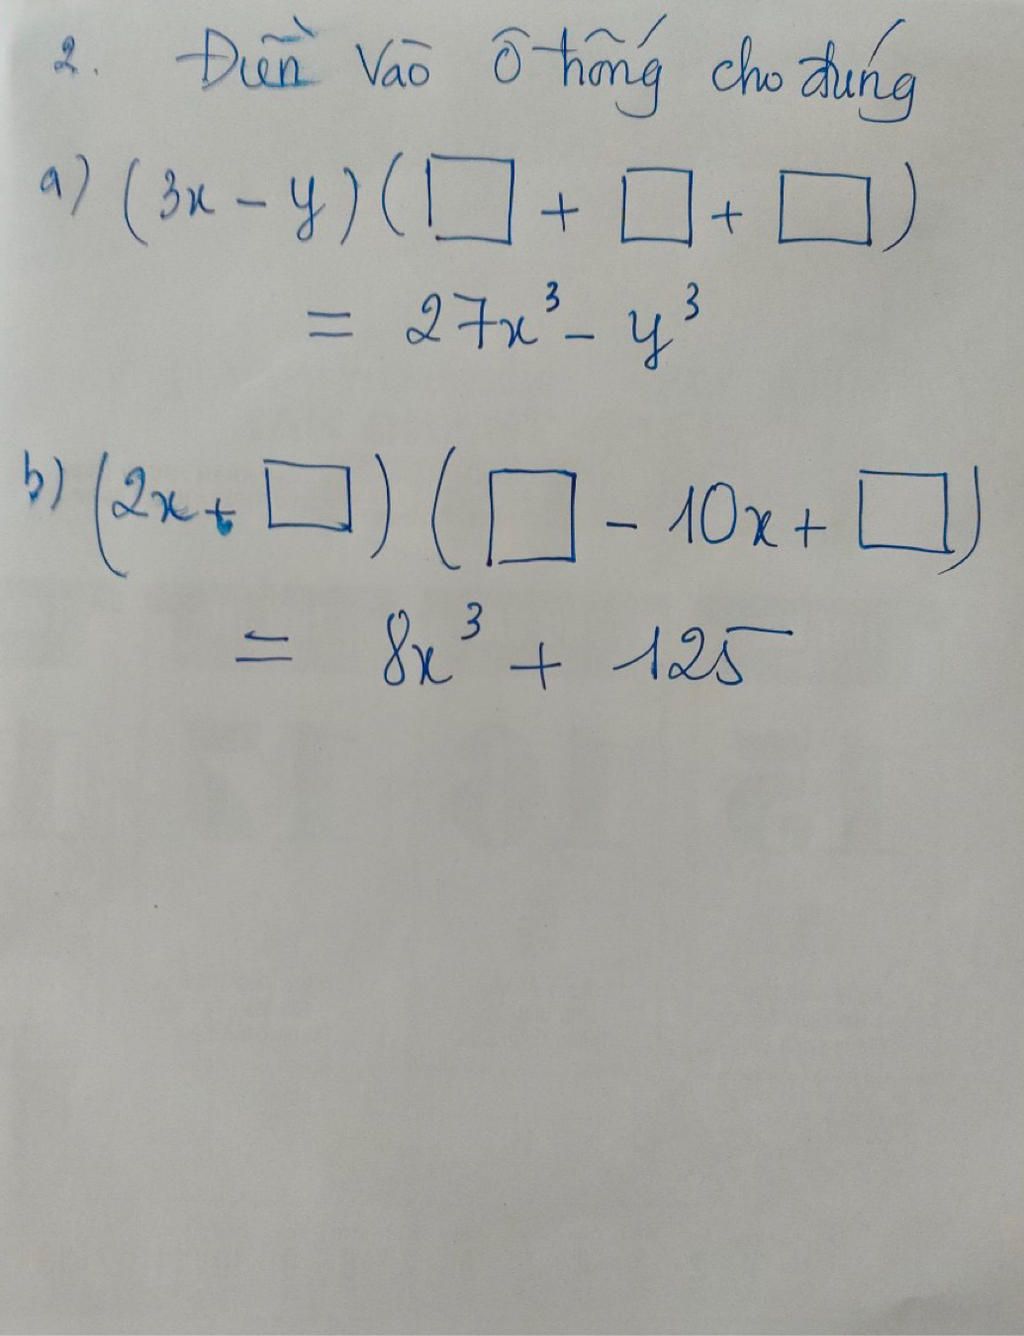 2. Điền vào ô trống cho đúng
a) (3x - y) (□ + □ + □)
= 27x³ - y³
b) (2x + □) (□ - 10x + □)
= 8x³ + 125